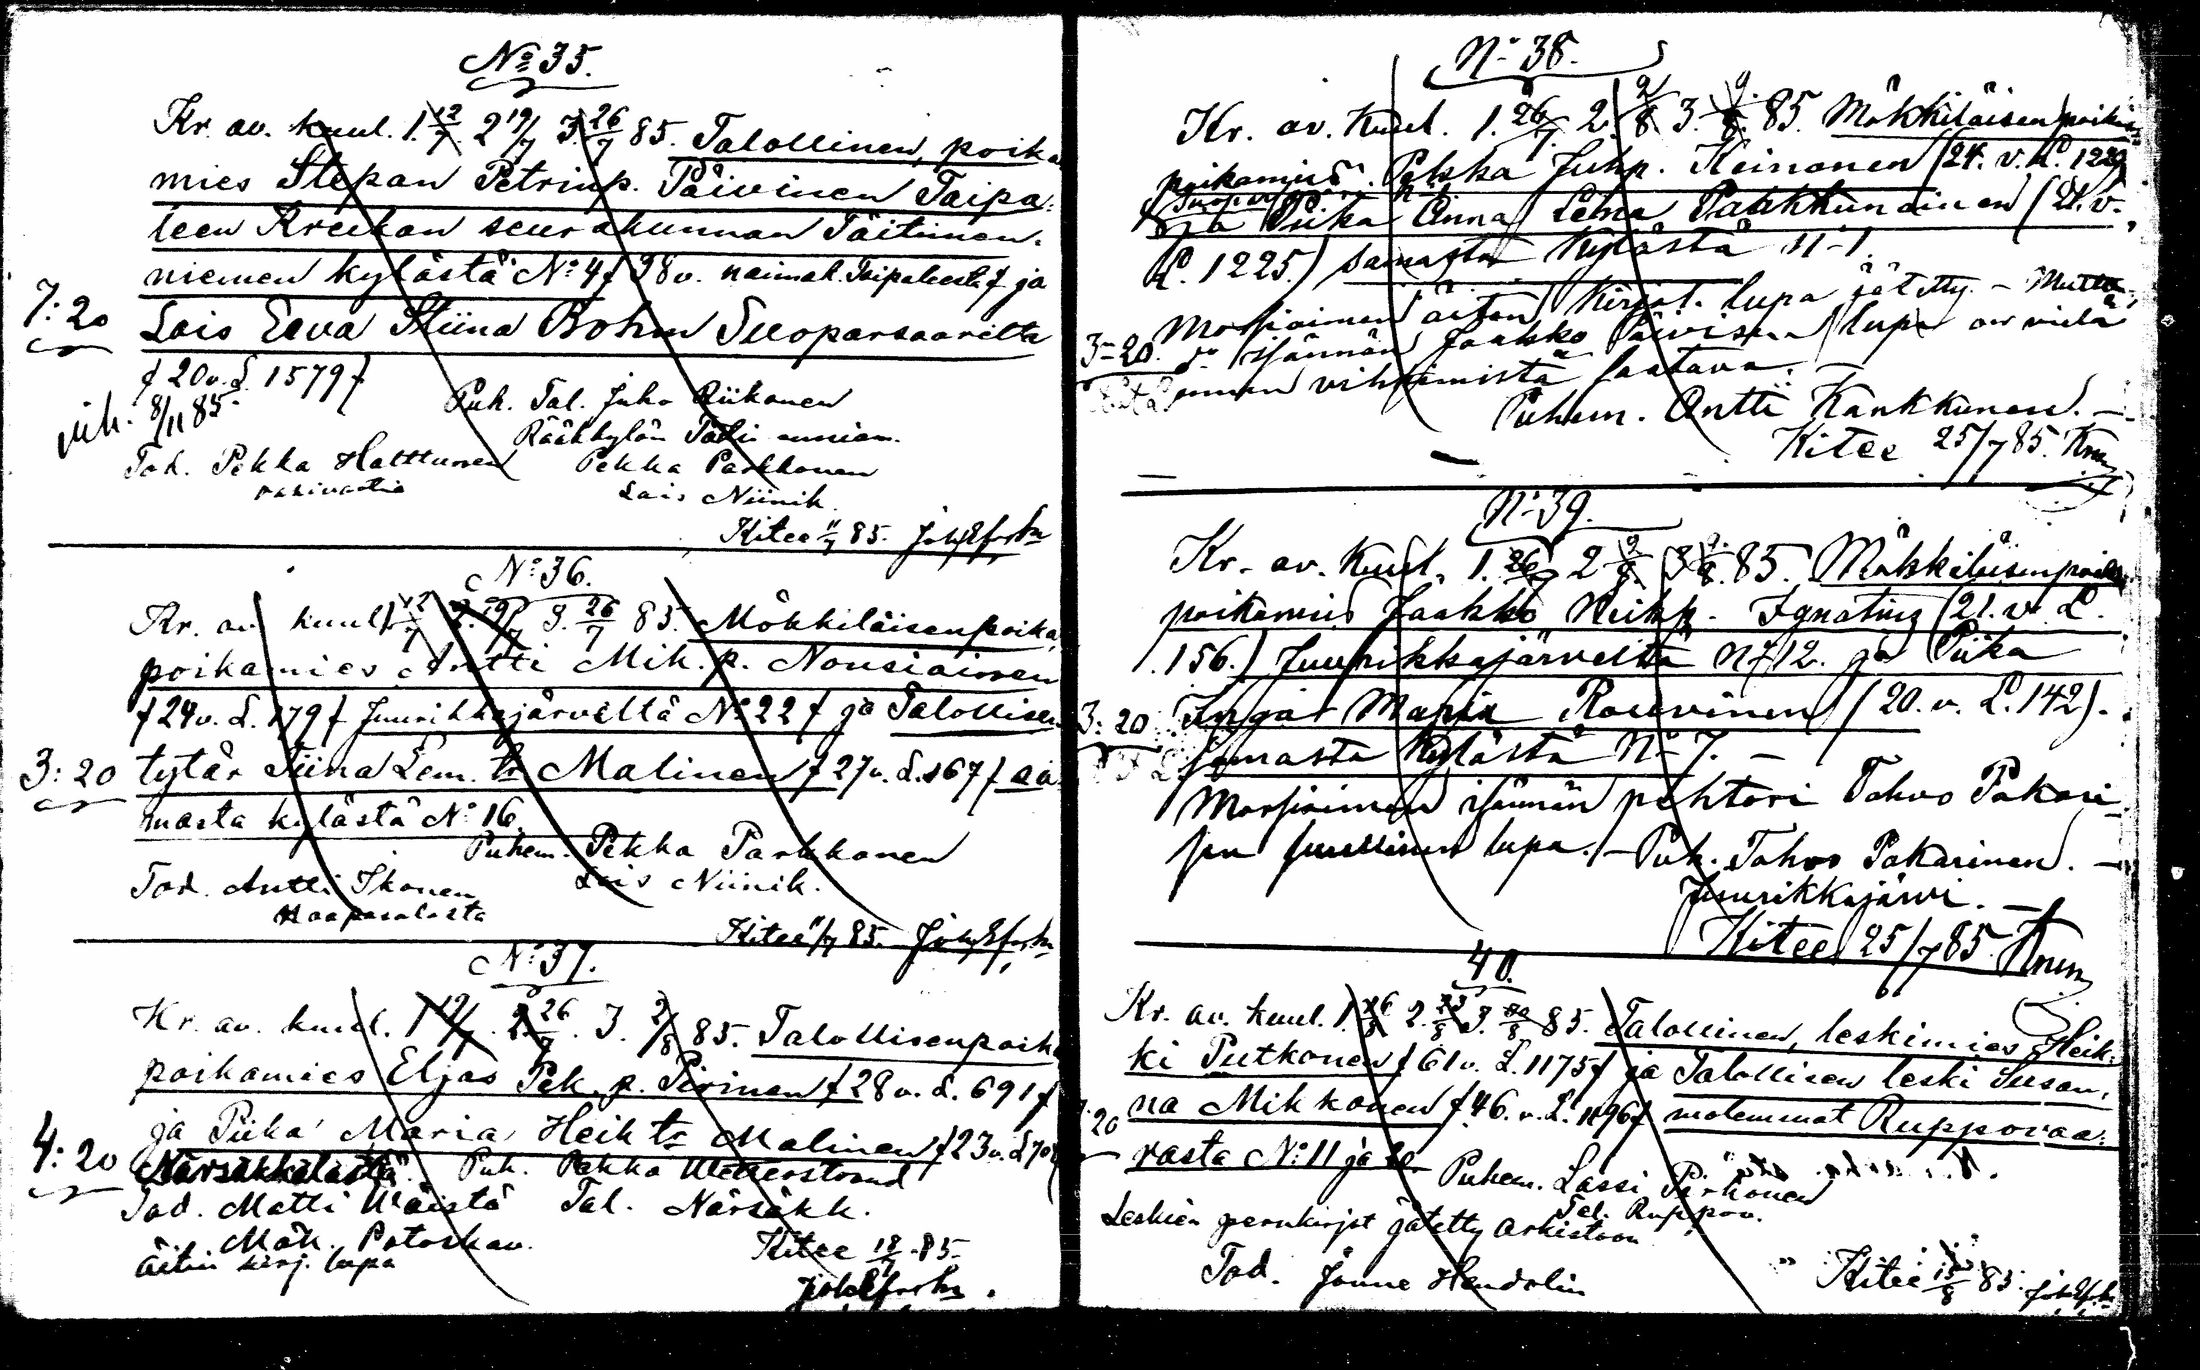 No 35.
Kr. av. kuul. 1. 12/7. 2 19/7 3. 26/7 85. Talollinen, poika
mies Stepan Petrinp. Päivinen Taipa-
leen Kreikan seurakunnan Täitimen-
niemen kylästä No 4 f 38 v. naimat. Taipaleesta f ja
7:20
Lois Eeva Stiina Bohm Suoparsaarelta
f 20 v. L. 1579 f
vih. 8/11 85.
Puh. Tal. Juho Riikonen
Rääkkylän
Tod. Pekka Hatttunen
Pekka Parkkonen
Lois Niinik.
Kitee 11/7 85.
No 36.
Kr. av. kuul. 1 12/7 2. 19/7 3. 26/7 85. Mökkiläisenpoika,
poikamies Antti Mik. p. Nousiainen
f 24 v. L. 179 f Juurikkajärveltä No 22 f ja Talollisen
3:20
tytär Tiina Lem. tr Malinen f 27 v. L. 167 f sa
masta kylästä No 16.
Puhem. Pekka Parkkonen
Lois Niinik.
Tod. Antti Ikonen
Haapasalosta
Kitee 11/7 85.
No 37.
Kr. av. kuul. 1 19/7. 2. 26/7. 3. 2/8 85. Talollisenpoika
poikamies Eljas Pek. p. Pirinen f 28 v. L. 691 f
ja Piika Maria Heik tr Malinen f 23 v. L 70
4:20
Närsäkkälästä. Puh. Pekka Wetterstrand
Tod. Matti Wäistö Tal. Närsäkk.
Mök. Potoskav.
Äitin kirj. lupa
Kitee 18/7 85.
No 38.
Kr. av. kuul. 1. 26/7. 2. 2/8. 3. 9/8. 85. Mökkiläisenpoika
poikamies Pekka Juhp. Keinonen (24. v. L. 122
ja Piika Anna Lena Pakkkunainen (21. v.
L. 1225.) samasta kylästä No 1.
Morsiaimen äitin kirjal. lupa jätetty. - Mutta
3-20.
do isännän Jaakko Päivisen lupa on vielä
ennen vihkimistä saatava. -
Puhem. Antti Kankkunen. -
Kitee 25/7 85.
No 39.
Kr. av. Kuul. 1. 26/7 2 2/8. 3 9/8. 85. Mökkiläisenpoika
poikamies Jaakko Heikp. Ignatius (21. v. L.
156.) Juurikkajärveltä No 12. ja Piika
3:20
Inga Maria Rouvinen (20. v. L. 142).
samasta kylästä No 7. -
Morsiaimen isännän pehtori Tahvo Pakari-
sen suullinen lupa. - Puh. Tahvo Pakarinen. -
Juurikkajärvi. -
Kitee 25/7 85
40.
Kr. av. kuul. 1. 16/8 2. 23/8 3. 30/8 85. Talollinen, leskimies Heik-
ki Putkonen f 61 v. L. 1175 f ja Talollisen leski Susan-
20
na Mikkonen f 46. v. L. 1196 f molemmat Ruppovaa-
rasta No 11 ja
Puhem. Lassi Pirhonen
Tal. Ruppov.
Leskien perukirjat jätetty arkistoon
Tod. Jonne Hendolin
Kitee 15/8 85.